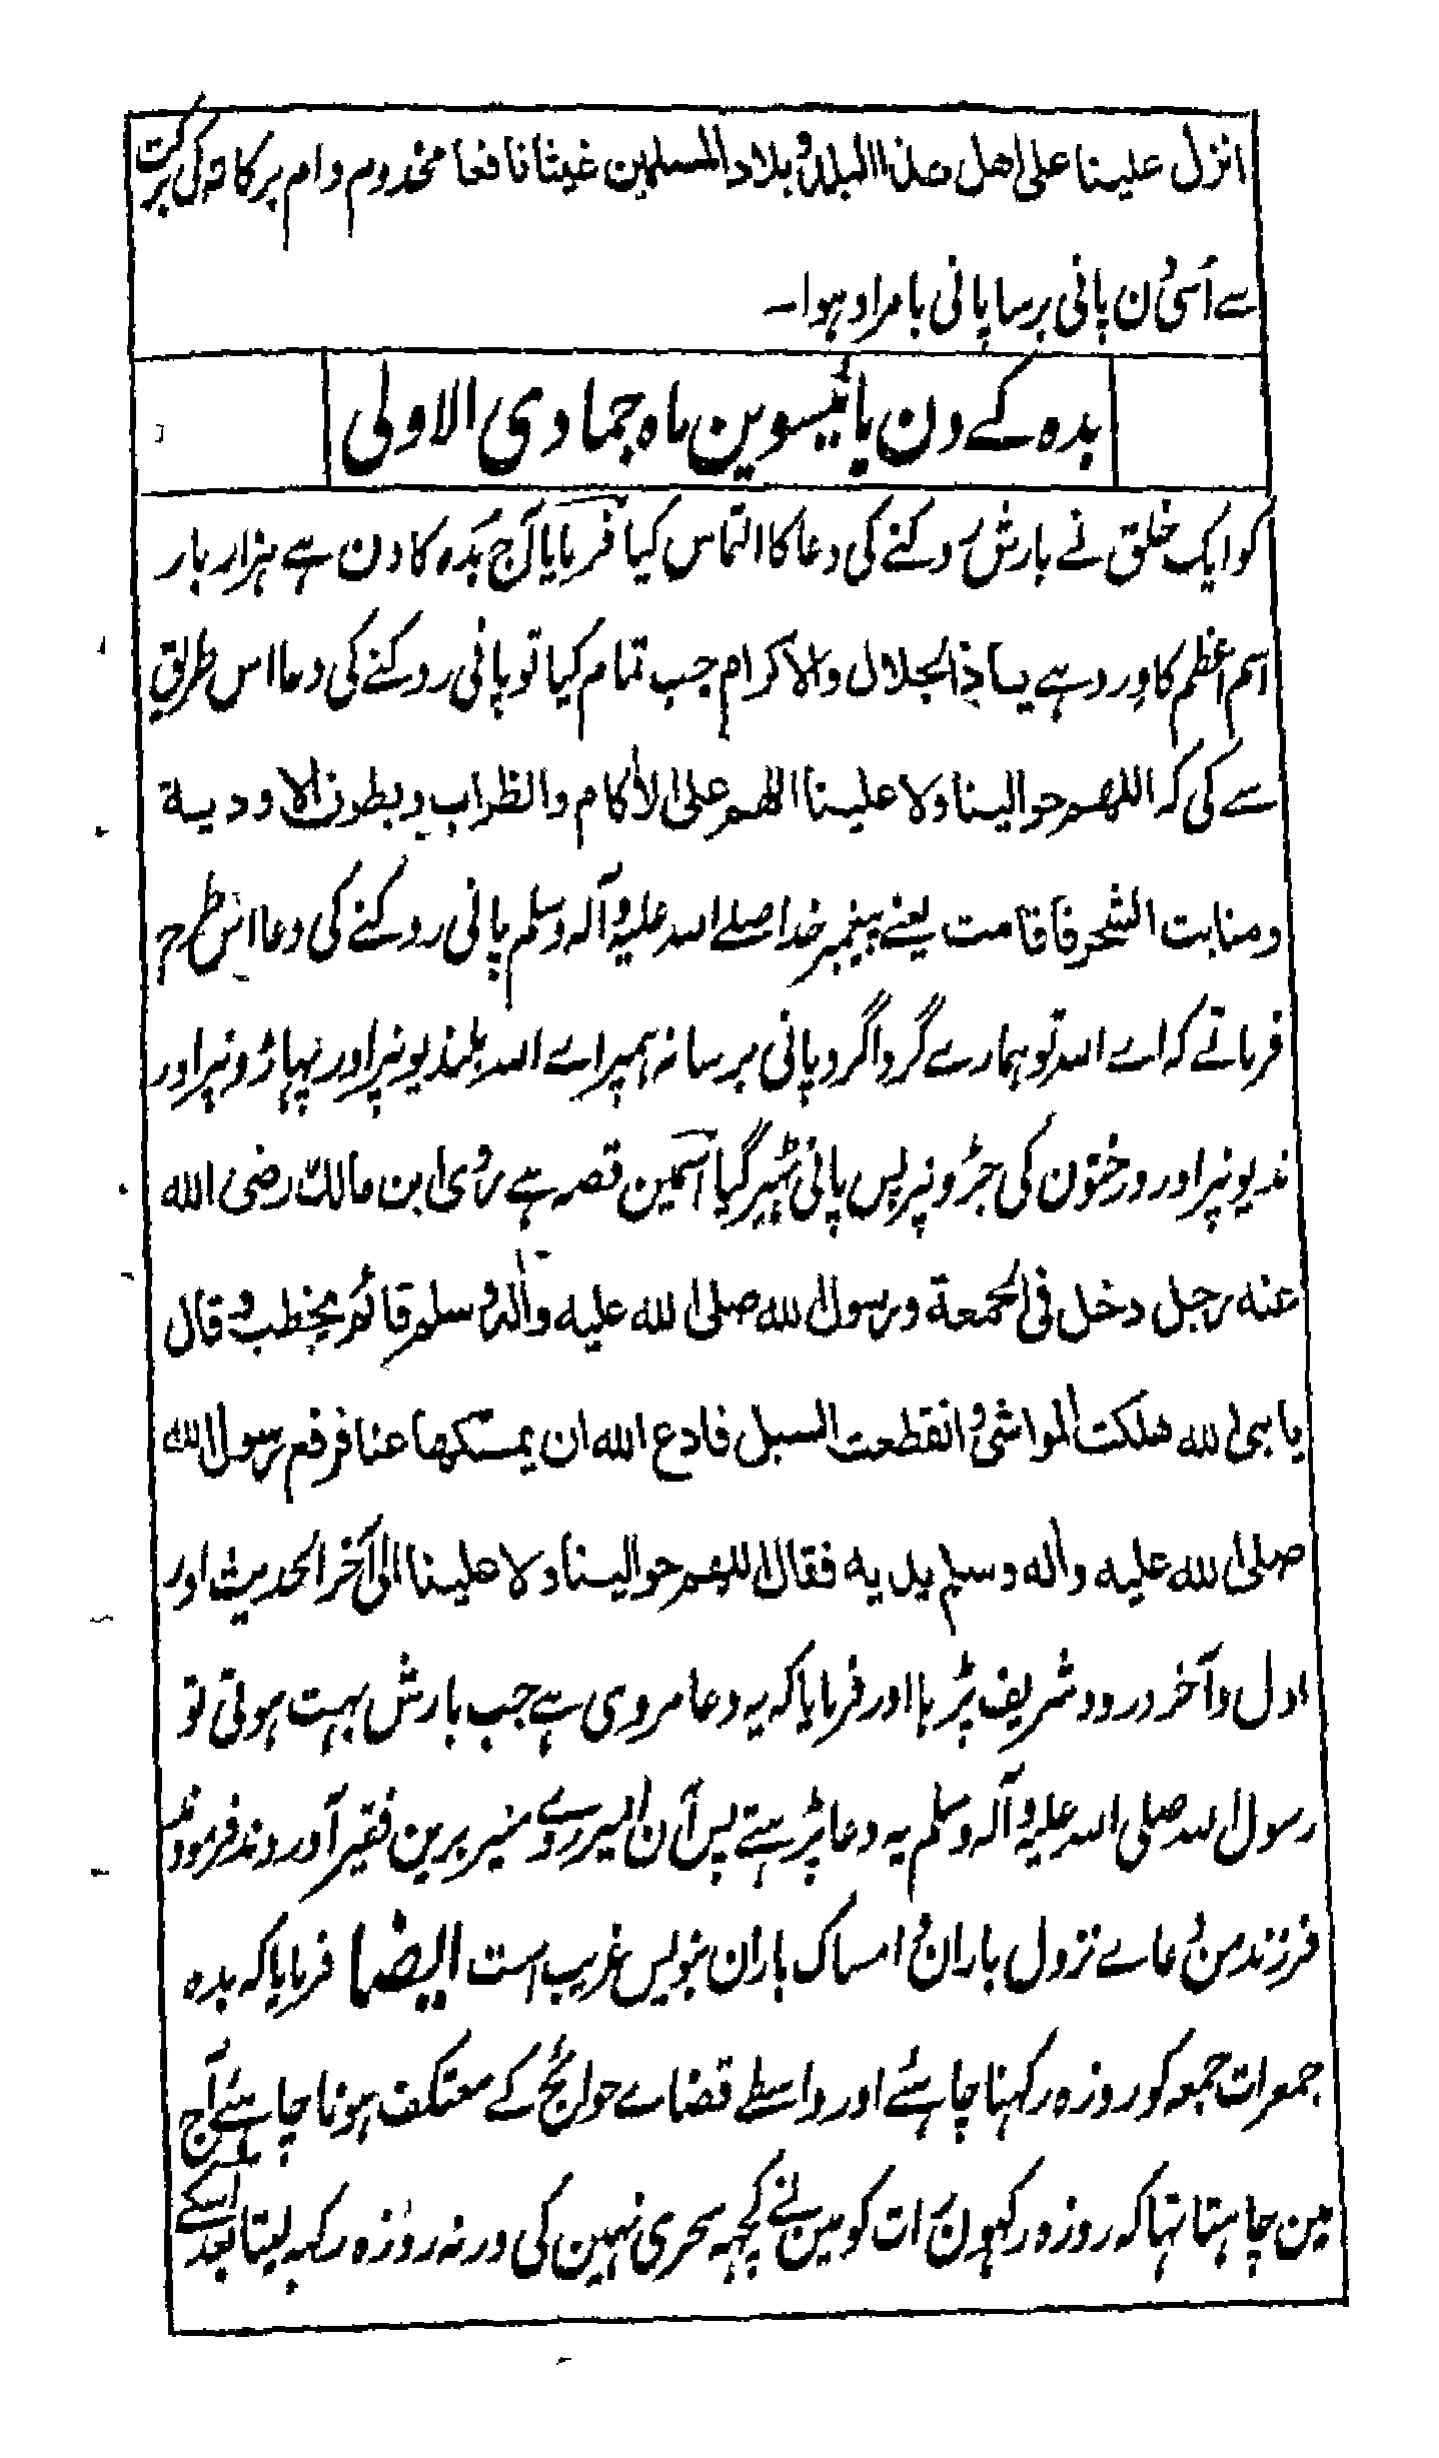 انزل علینا علی اهل هذا البلد و بلاد المسلمین غیثا نافعا مخدوم دام برکاته کی برکت
سے اُسی دن پانی برسا پانی بامراد ہوا۔
بدہ کے دن بائیسوین ماہ جمادی الاولی
کو ایک خلق نے بارش روکنے کی دعا کا التماس کیا فرمایا آج بُدہ کا دن ہے ہزار بار
اسم اعظم کا وِرد ہے یا ذالجلال والاکرام جب تمام کیا تو پانی روکنے کی دعا اس طریق
سے کی کہ اللهم حوالینا ولا علینا اللهم علی الاٰکام والظراب وبطون الاودیة
ومنابت الشجر فاقامت یعنے پیغمبر خدا صلے اللہ علیہ وآلہ وسلم پانی روکنے کی دعا اس طرح
فرماتے کہ اے اللہ تو ہمارے گرداگرد پانی برسا نہ ہمپر اے اللہ بلندیونپر اور پہاڑونپر اور
ندیونپر اور درختون کی جڑونپر پس پانی ٹہیر گیا اسمین قصہ ہے روی ابن مالک رضی الله
عنه رجل دخل فی الجمعة ورسول الله صلی الله علیه واٰله وسلم قائم یخطب وقال
یا نبی الله هلکت المواشی وانقطعت السبل فادع الله ان یمسکها عنا فرفع رسول الله
صلی الله علیه واٰله وسلم یدیه فقال اللهم حوالینا ولا علینا الی آخر الحدیث اور
اول وآخر درود شریف پڑہا اور فرمایا کہ یہ دعا مروی ہے جب بارش بہت ہوتی تو
رسول اللہ صلی اللہ علیہ وآلہ وسلم یہ دعا پڑہتے پس آن روے منیر برین فقیر آوردند فرمودند
فرزند من دعاے نزول باران و امساک باران بنویس غریب است ایضا فرمایا کہ بدہ
جمعرات جمعہ کو روزہ رکہنا چاہئے اور واسطے قضاے حوائج کے معتکف ہونا چاہئے آج
مین چاہتا تہا کہ روزہ رکہون رات کو مین نے کچہہ سحری نہین کی ورنہ روزہ رکہہ لیتا بعد اسکے